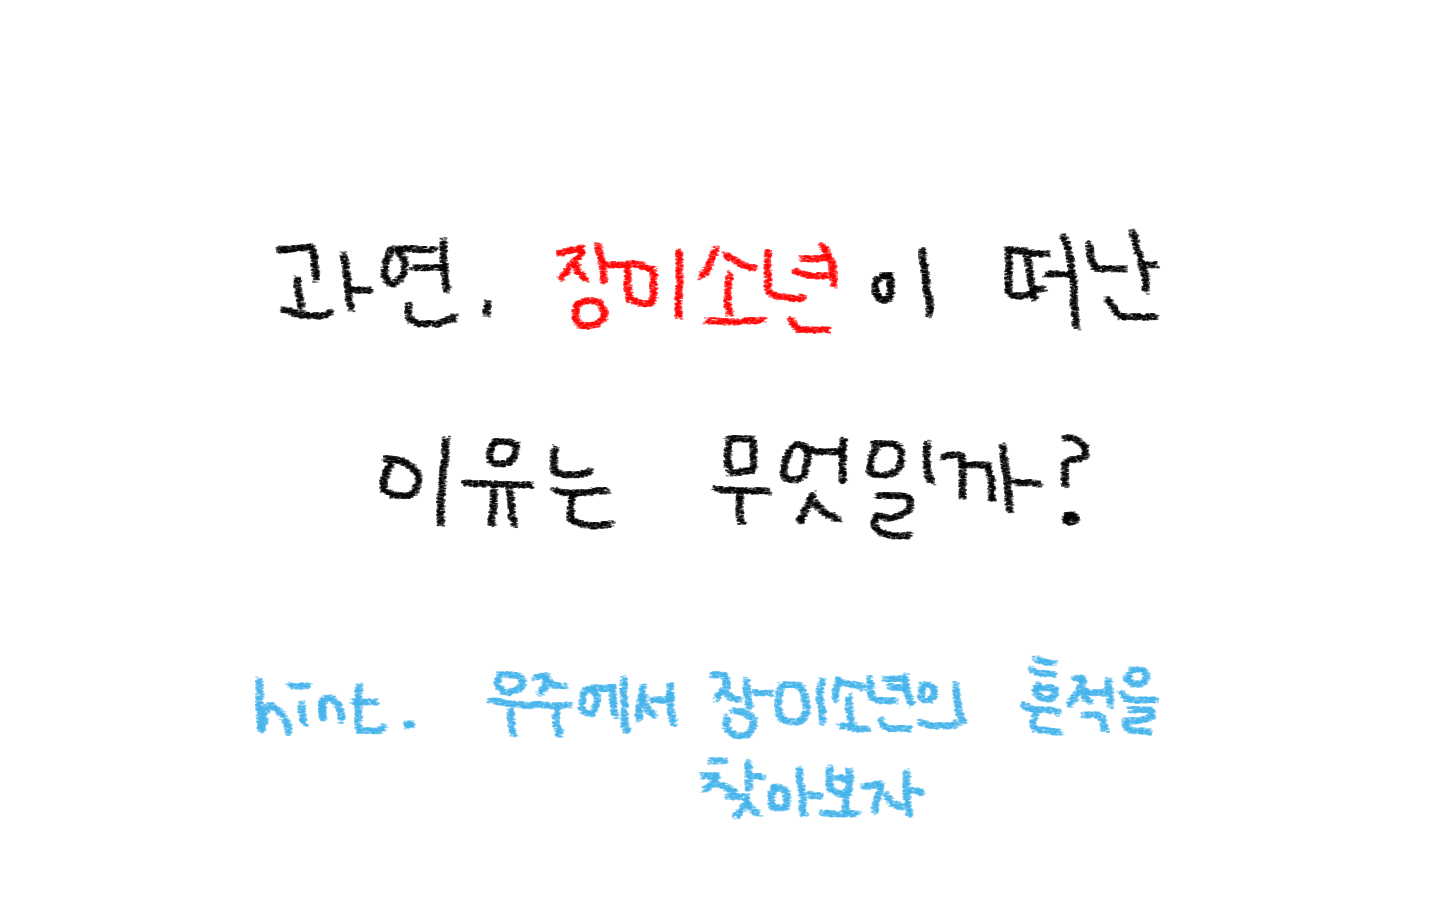 과연, 장미소년이 떠난
이유는 무엇일까?
hint. 우주에서 장미소년의 흔적을
찾아보자